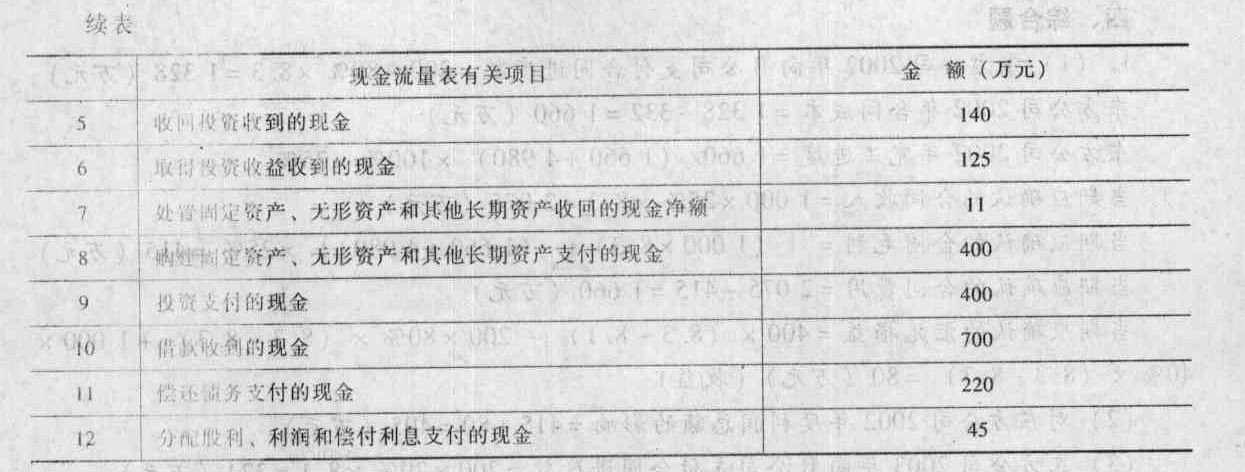 续表
现金流量表有关项目 金 额（万元）
5 收回投资收到的现金 140
6 取得投资收益收到的现金 125
7 处置固定资产、无形资产和其他长期资产收回的现金净额 11
8 购建固定资产、无形资产和其他长期资产支付的现金 400
9 投资支付的现金 400
10 借款收到的现金 700
11 偿还债务支付的现金 220
12 分配股利、利润和偿付利息支付的现金 45